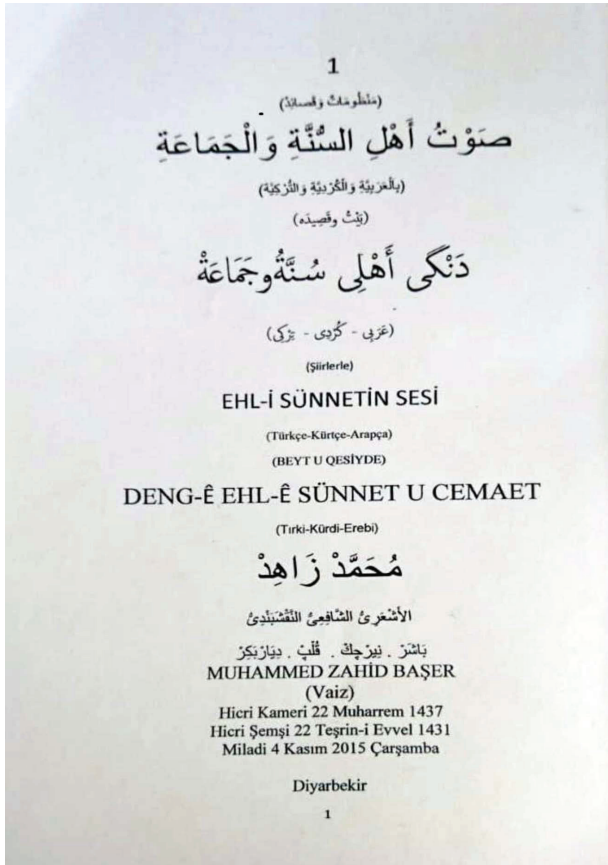 1
(مَنْظُومَاتٌ وَقَصَائِدُ)
صَوْتُ أَهْلِ السُّنَّةِ وَالْجَمَاعَةِ
(بِالْعَرَبِيَّةِ وَالْكُرْدِيَّةِ وَالتُّرْكِيَّةِ)
(بَيْتْ وقَصِيدَه)
دَنْگى أَهْلِى سُنَّةُ وجَمَاعَةْ
(عَرَبِي - كُرْدِى - تِرْكِى)
(Şiirlerle)
EHL-İ SÜNNETİN SESİ
(Türkçe-Kürtçe-Arapça)
(BEYT U QESIYDE)
DENG-Ê EHL-Ê SÜNNET U CEMAET
(Tırki-Kürdi-Erebi)
مُحَمَّدْ زَاهِدْ
الأَشْعَرِىُّ الشَّافِعِىُّ النَّقْشَبَنْدِىُّ
بَاشَرْ . نِيرْچِكْ . قُلْپْ . دِيَارْبَكِرْ
MUHAMMED ZAHİD BAŞER
(Vaiz)
Hicri Kameri 22 Muharrem 1437
Hicri Şemşi 22 Teşrin-i Evvel 1431
Miladi 4 Kasım 2015 Çarşamba
Diyarbekir
1